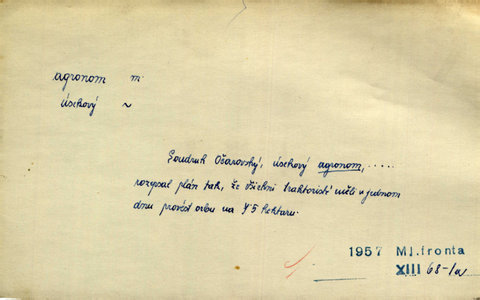 agronom m.
úsekový ~
Soudruh Ožarovský, úsekový agronom, .....
rozepsal plán tak, že všichni traktoristé měli v jednom
dnu provést orbu na 75 hektarů.
1957 Ml. fronta
XIII 68-1a